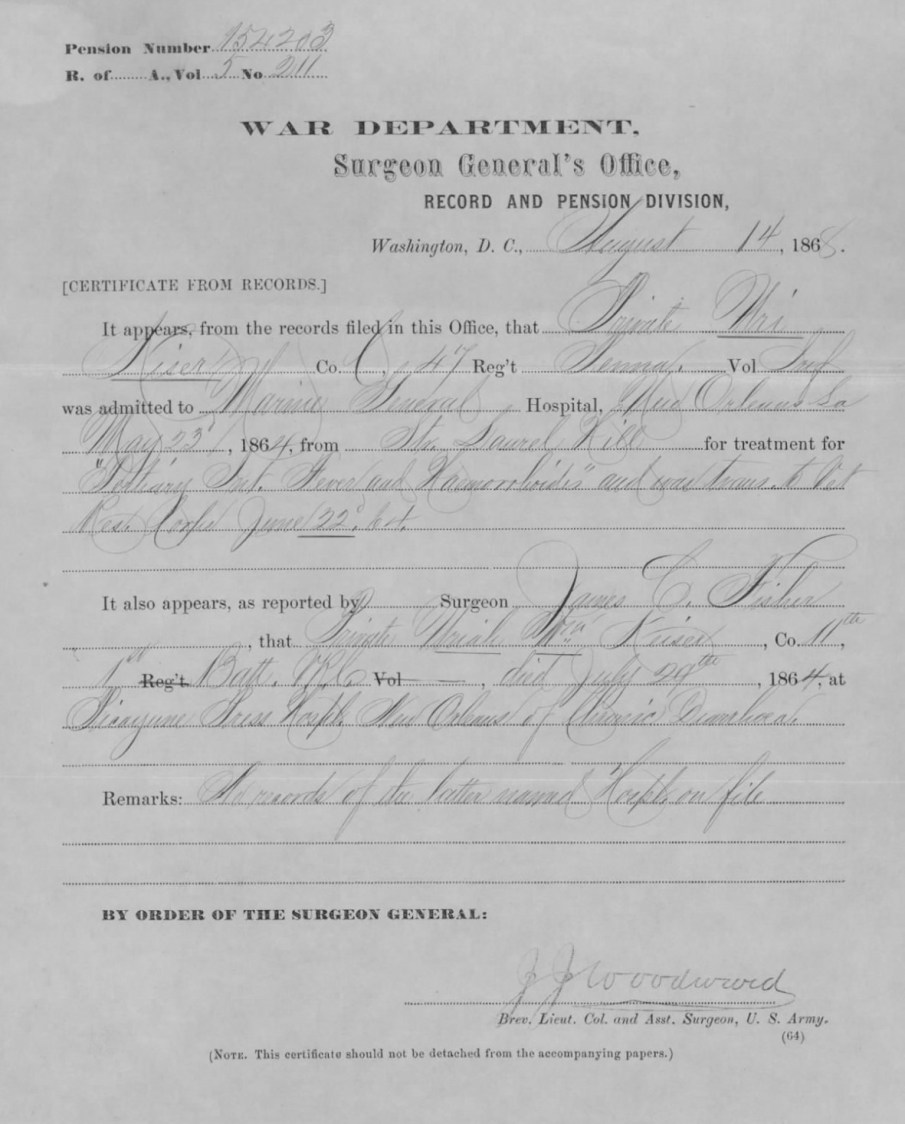 Pension Number 154203
R. of ........ A., Vol 5 No 211
WAR DEPARTMENT,
Surgeon General's Office,
RECORD AND PENSION DIVISION,
Washington, D. C., August 14, 1868.
[CERTIFICATE FROM RECORDS.]
It appears, from the records filed in this Office, that Private Uri
Kiser Co. C, 47 Reg't Penna. Vol Inf
was admitted to Marine General Hospital, New Orleans La
May 23d, 1864, from Str. Laurel Hill for treatment for
"Tertiary Int. Fever and Haemorrhoids" and was trans. to Vet
Res. Corps June 22d, 64.
It also appears, as reported by Surgeon James C. Fisher
, that Private Uriah Wm Keiser, Co. 11th,
1st Reg't Batt. V.R.C. Vol , died July 29th, 1864, at
Picayune Press Hospl. New Orleans of Chronic Diarrhoea.
Remarks: No records of the latter named Hospl. on file
BY ORDER OF THE SURGEON GENERAL:
J J Woodward
Brev. Lieut. Col. and Asst. Surgeon, U. S. Army.
(64)
(NOTE. This certificate should not be detached from the accompanying papers.)